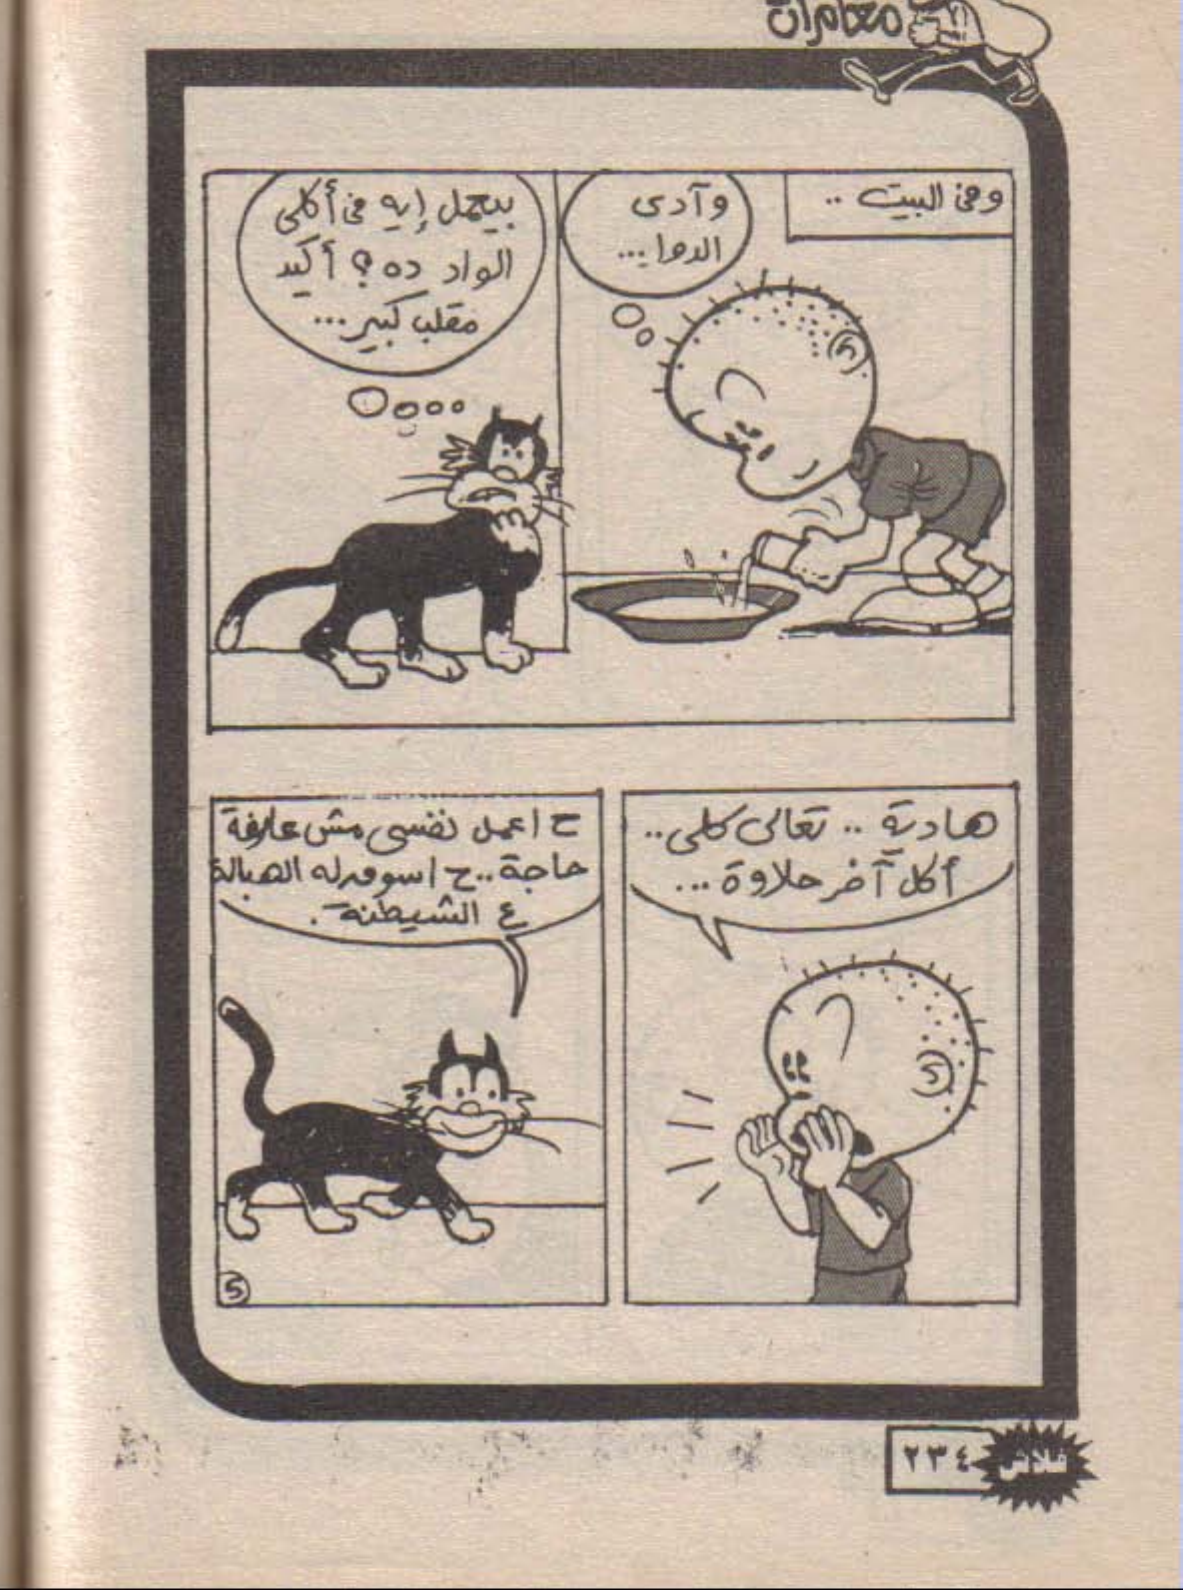 مغامرات
وفى البيت ..
وآدى
الدوا...
بيعمل إيه فى أكلى
الواد ده؟ أكيد
مقلب كبير...
هادية .. تعالى كلى..
أكل آخر حلاوة ...
ح اعمل نفسى مش عارفة
حاجة.. ح اسوق له الهبالة
ع الشيطنة.
5
فلاش ٢٣٤